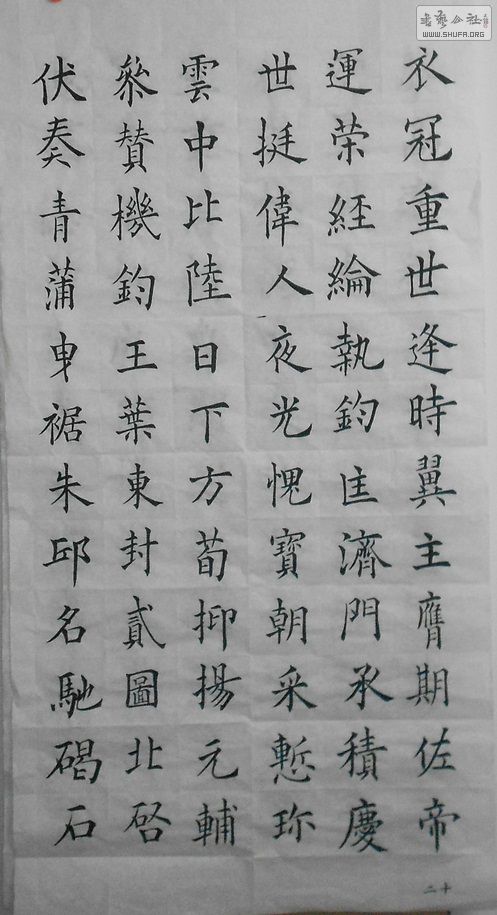 衣冠重世逢時翼主膺期佐帝
運荣經綸執鈞匡濟門承積慶
世挺偉人夜光愧寶朝采慙珎
雲中比陸日下方荀抑揚元輔
叅賛機鈞王葉東封貳圖北啓
伏奏青蒲曳裾朱邱名馳碣石
二十
書藝公社
WWW.SHUFA.ORG